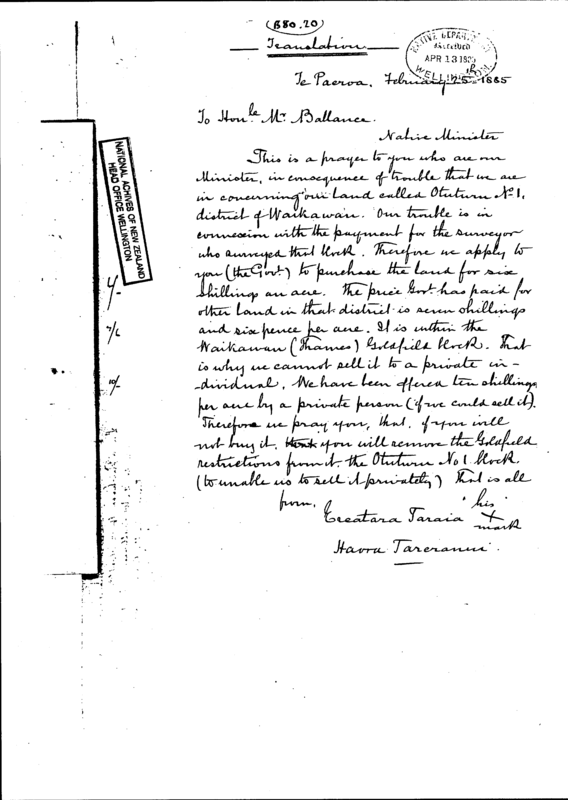 (B80.20)
Translation
NATIVE DEPARTMENT
RECEIVED
APR 13 1885
WELLINGTON
Te Paeroa. February 25th 1885
To Honble Mr Ballance.
Native Minister
This is a prayer to you who are our
Minister, in consequence of trouble that we are
in concerning our land called Otuturu No 1,
district of Waikawau. Our trouble is in
connexion with the payment for the surveyor
who surveyed that block. Therefore we apply to
you (the Govt) to purchase the land for six
shillings an acre. The price Govt. has paid for
other land in that district is seven shillings
and six pence per acre. It is within the
Waikawau (Thames) Goldfield block. That
is why we cannot sell it to a private in-
dividual. We have been offered ten shillings
per acre by a private person (if we could sell it).
Therefore we pray you, that, if you will
not buy it, you will remove the Goldfield
restrictions from it the Otuturu No 1 block.
(to unable us to sell it privately) That is all
from,
Ereatara Taraia his X mark
Haora Tareranui
NATIONAL ACHIVES OF NEW ZEALAND
HEAD OFFICE WELLINGTON
4/-
7/6
10/-